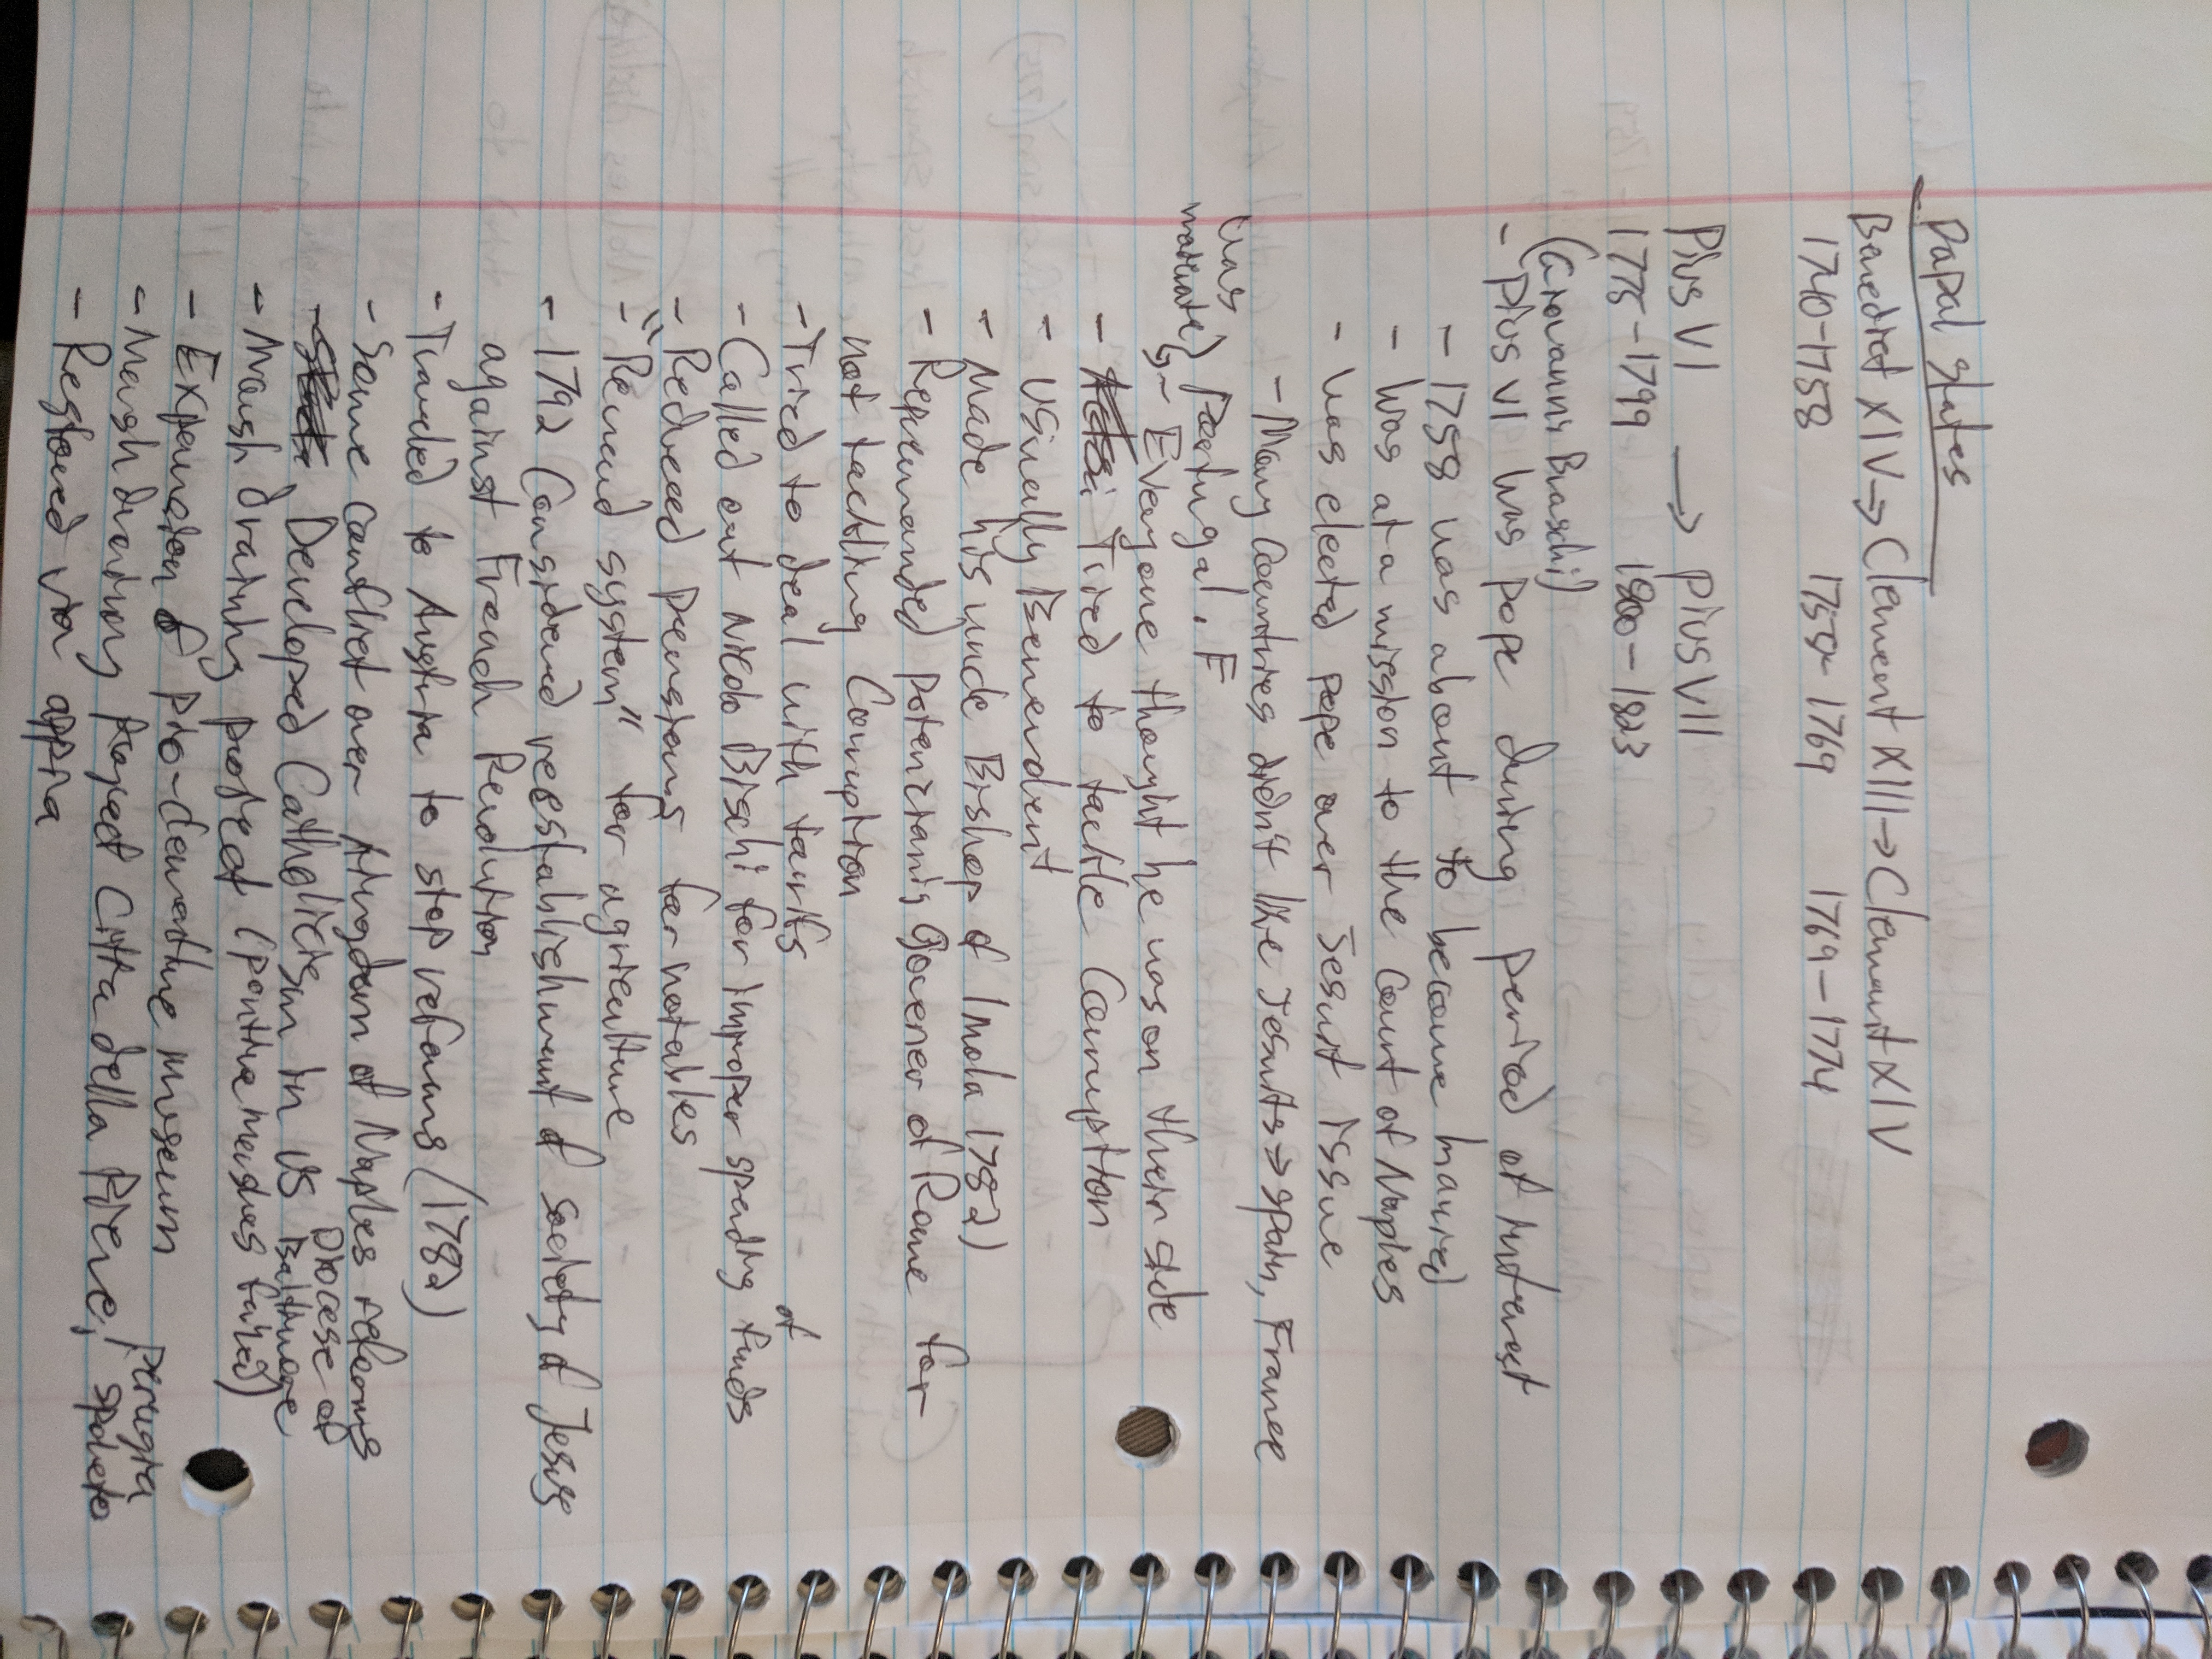 Papal States
Benedict XIV → Clement XIII → Clement XIV
1740-1758 1758-1769 1769-1774
Pius VI → Pius VII
1775-1799 1800-1823
(Giovanni Braschi)
- Pius VI was pope during period of interest
- 1758 was about to become married
- Was at a mission to the Court of Naples
- Was elected pope over Jesuit issue
- Many Countries didn't like Jesuits → Spain, France
Portugal. F
was
moderate
↳ Everyone thought he was on their side
- Tried to tackle Corruption
- Usually Benevolent
- Made his uncle Bishop of Imola 1782)
- Reprimanded Potenziani, Governer of Rome for
not tackling Corruption
- Tried to deal with tariffs
- Called out Nicolo Bischi for improper spending of funds
- Reduced pensions for notables
- "Reward system" for agriculture
- 1792 Considered reestablishment of society of Jesus
against French Revolution
- Traveled to Austria to stop reforms (1782)
- Some Conflict over Kingdom of Naples reforms
- Developed Catholicism in US Diocese of
Baltimore
- Marsh draining project (pontine marshes failed)
- Expansion of pio-clementine museum
- Marsh draining project Citta della Pieve, Perugia
Spoleto
- Restored via appia